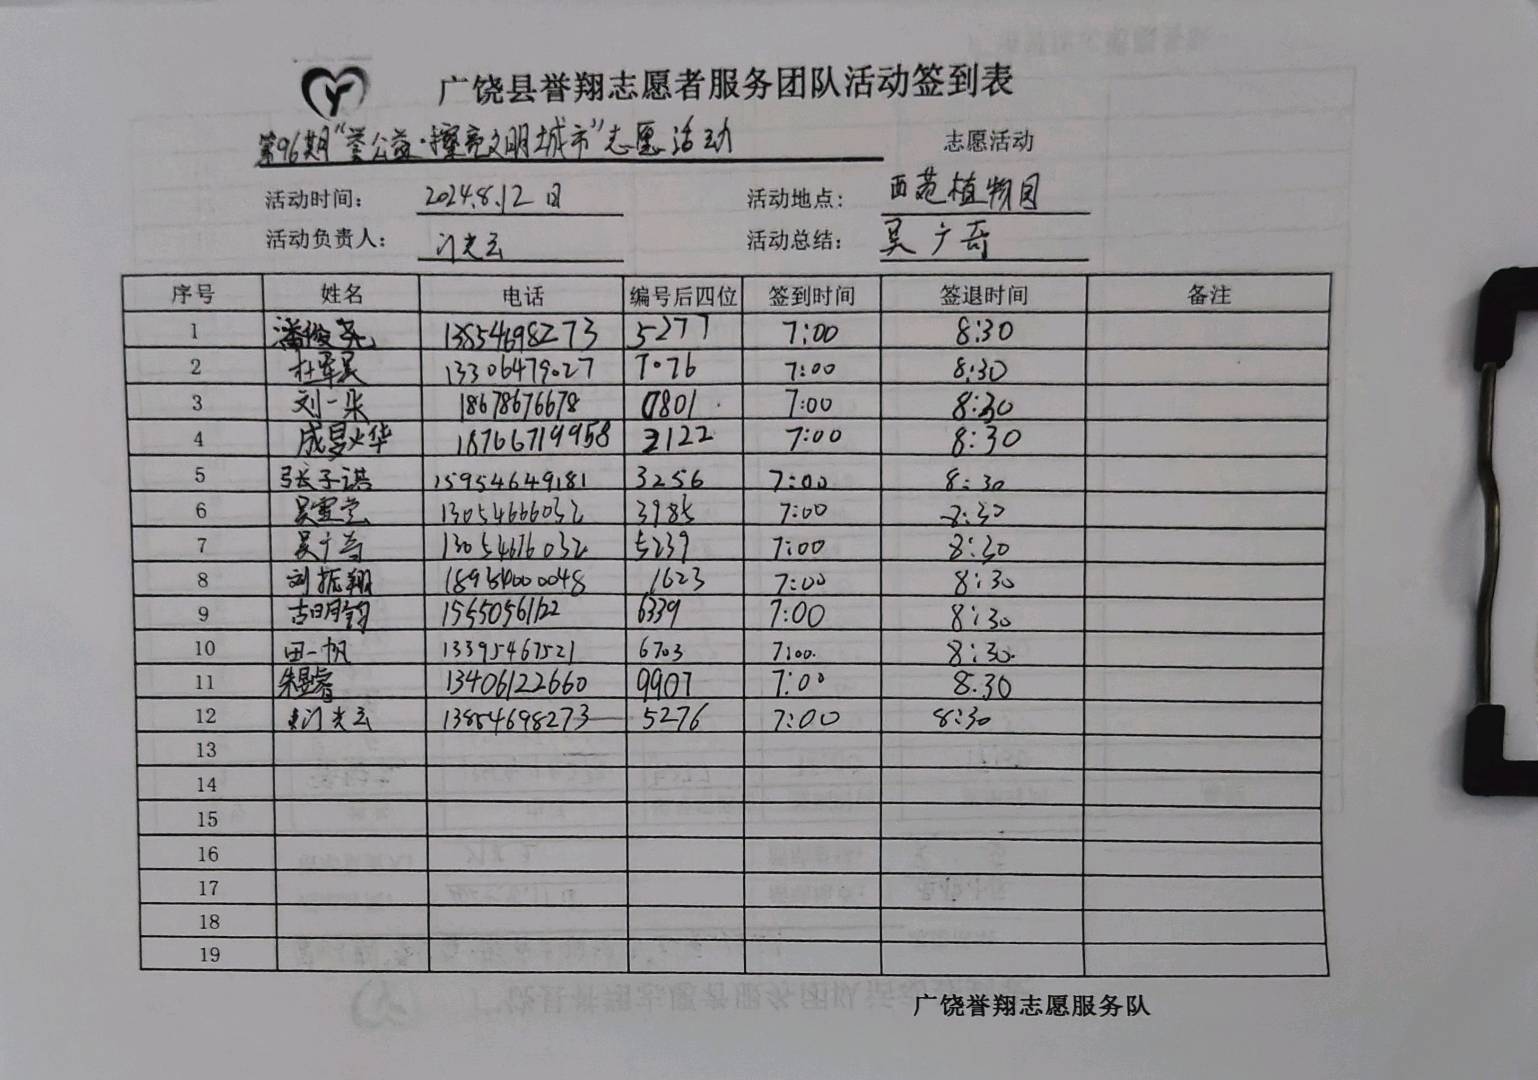 广饶县誉翔志愿者服务团队活动签到表
第96期“誉公益·擦亮文明城市”志愿活动 志愿活动
活动时间： 2024.8.12日 活动地点： 西苑植物园
活动负责人： 门光云 活动总结： 吴广奇
序号 姓名 电话 编号后四位 签到时间 签退时间 备注
1 潘俊尧 13854698273 5277 7:00 8:30
2 杜军昊 13306479027 7076 7:00 8:30
3 刘一朵 18678676678 0801 7:00 8:30
4 18766719958 2122 7:00 8:30
5 张子谌 15954649181 3256 7:00 8:30
6 吴雪莹 13054666032 3985 7:00 8:30
7 吴广奇 13054676032 5239 7:00 8:30
8 刘振翔 18954000048 1623 7:00 8:30
9 古明钧 15650561122 6339 7:00 8:30
10 田一帆 13395467521 6703 7:00. 8:30.
11 朱昱睿 13406122660 9907 7:00 8.30
12 门光云 13854698273 5276 7:00 8:30
13
14
15
16
17
18
19
广饶誉翔志愿服务队